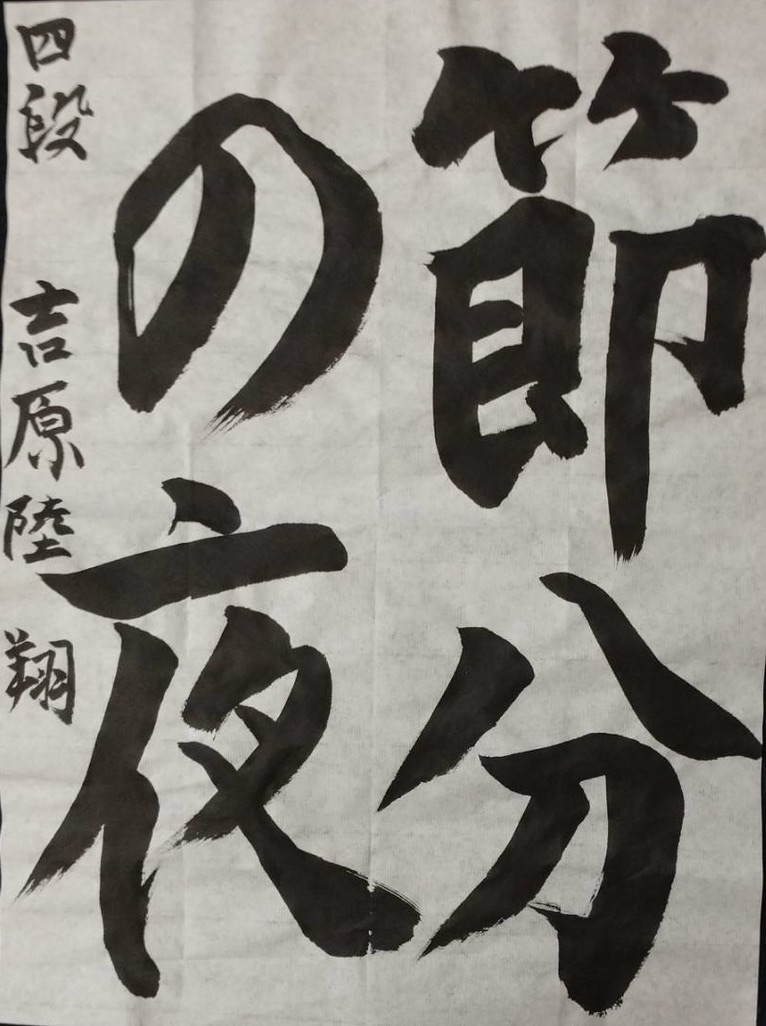 節分
の夜
四段 吉原陸翔